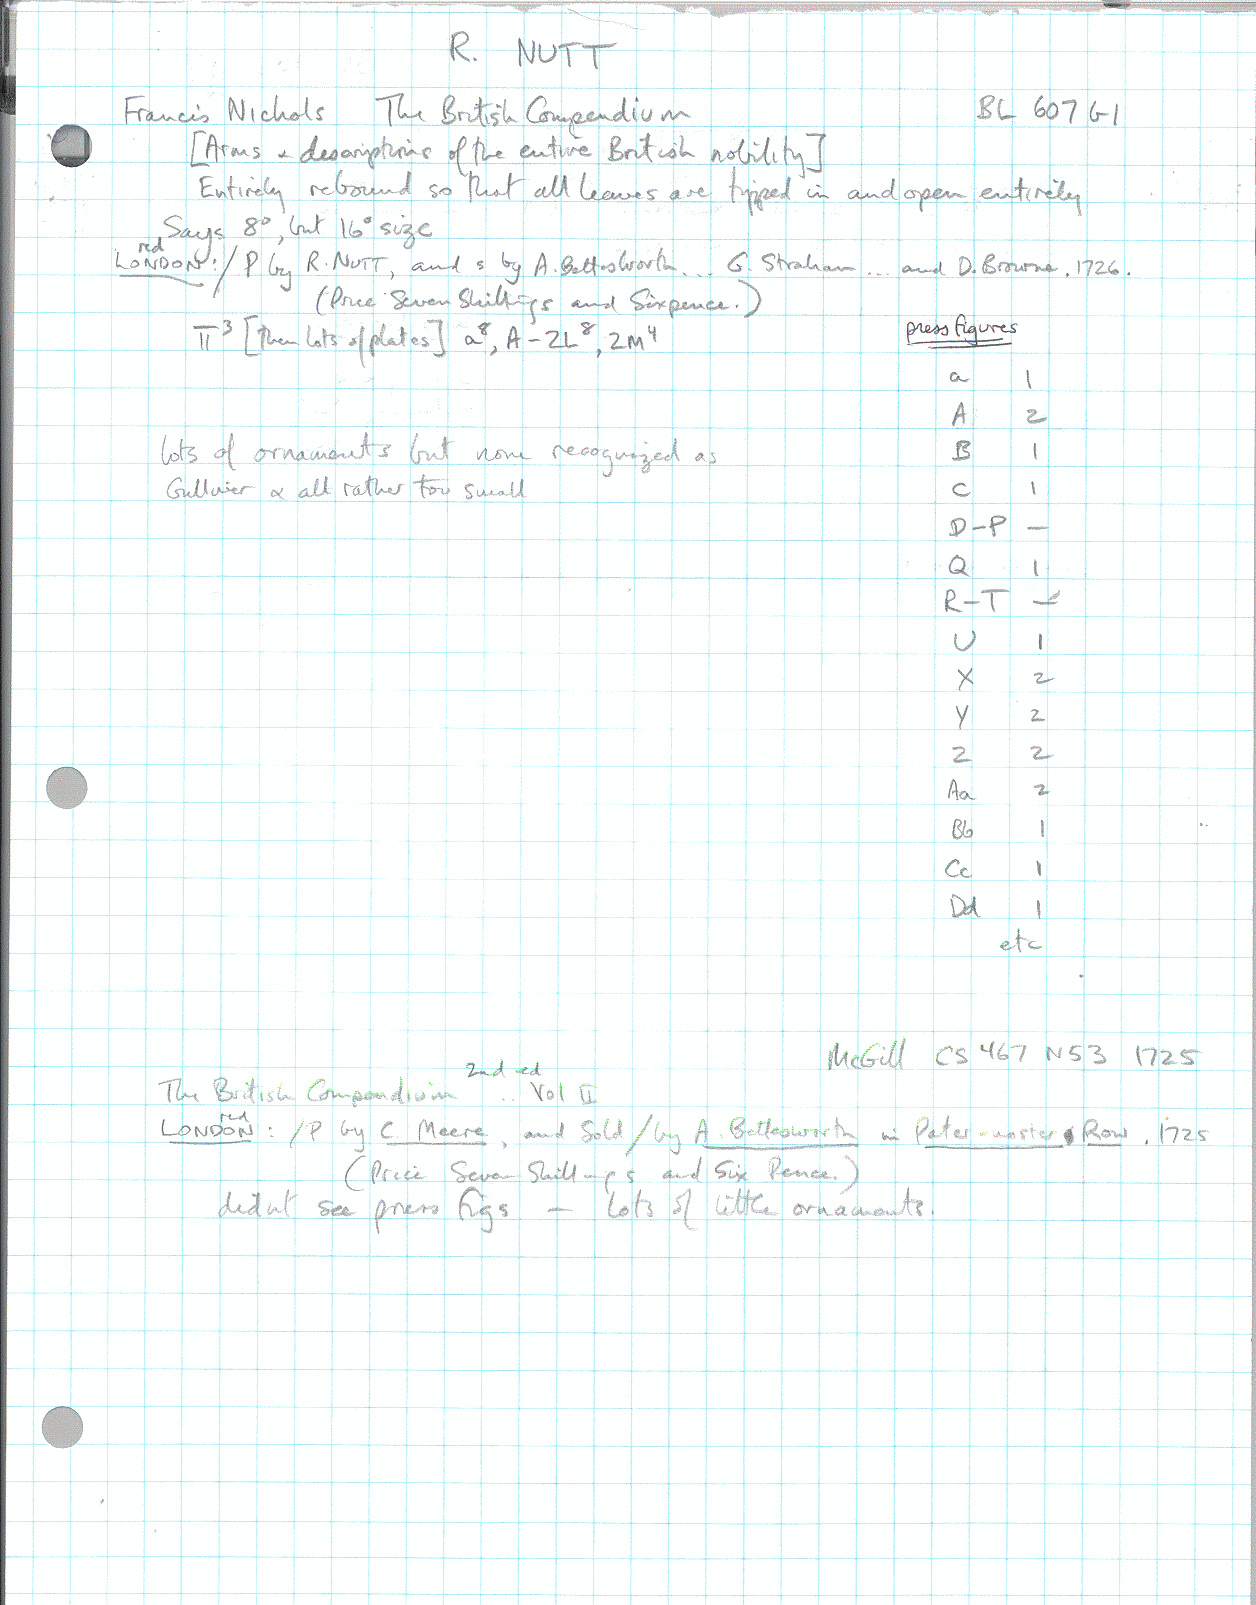 R. NUTT
Francis Nichols The British Compendium BL 607 G1
[Arms & descriptions of the entire British nobility]
Entirely rebound so that all leaves are tipped in and open entirely
Says 8°, but 16° size
red
LONDON: / P by R. NUTT, and s by A. Bettesworth... G. Strahan... and D. Browne, 1726.
(Price Seven Shillings and Sixpence.)
π³ [then lots of plates] a⁸, A-2L⁸, 2M⁴
press figures
a 1
A 2
B 1
C 1
D-P —
Q 1
R-T —
U 1
X 2
Y 2
Z 2
Aa 2
Bb 1
Cc 1
Dd 1
etc
lots of ornaments but none recognized as
Gulliver & all rather too small
McGill CS 467 N53 1725
2nd ed
The British Compendium .. Vol II
red
LONDON: / P by C Meere, and Sold / by A. Bettesworth in Pater-noster Row, 1725
(Price Seven Shillings and Six Pence.)
didnt see press figs — lots of little ornaments.